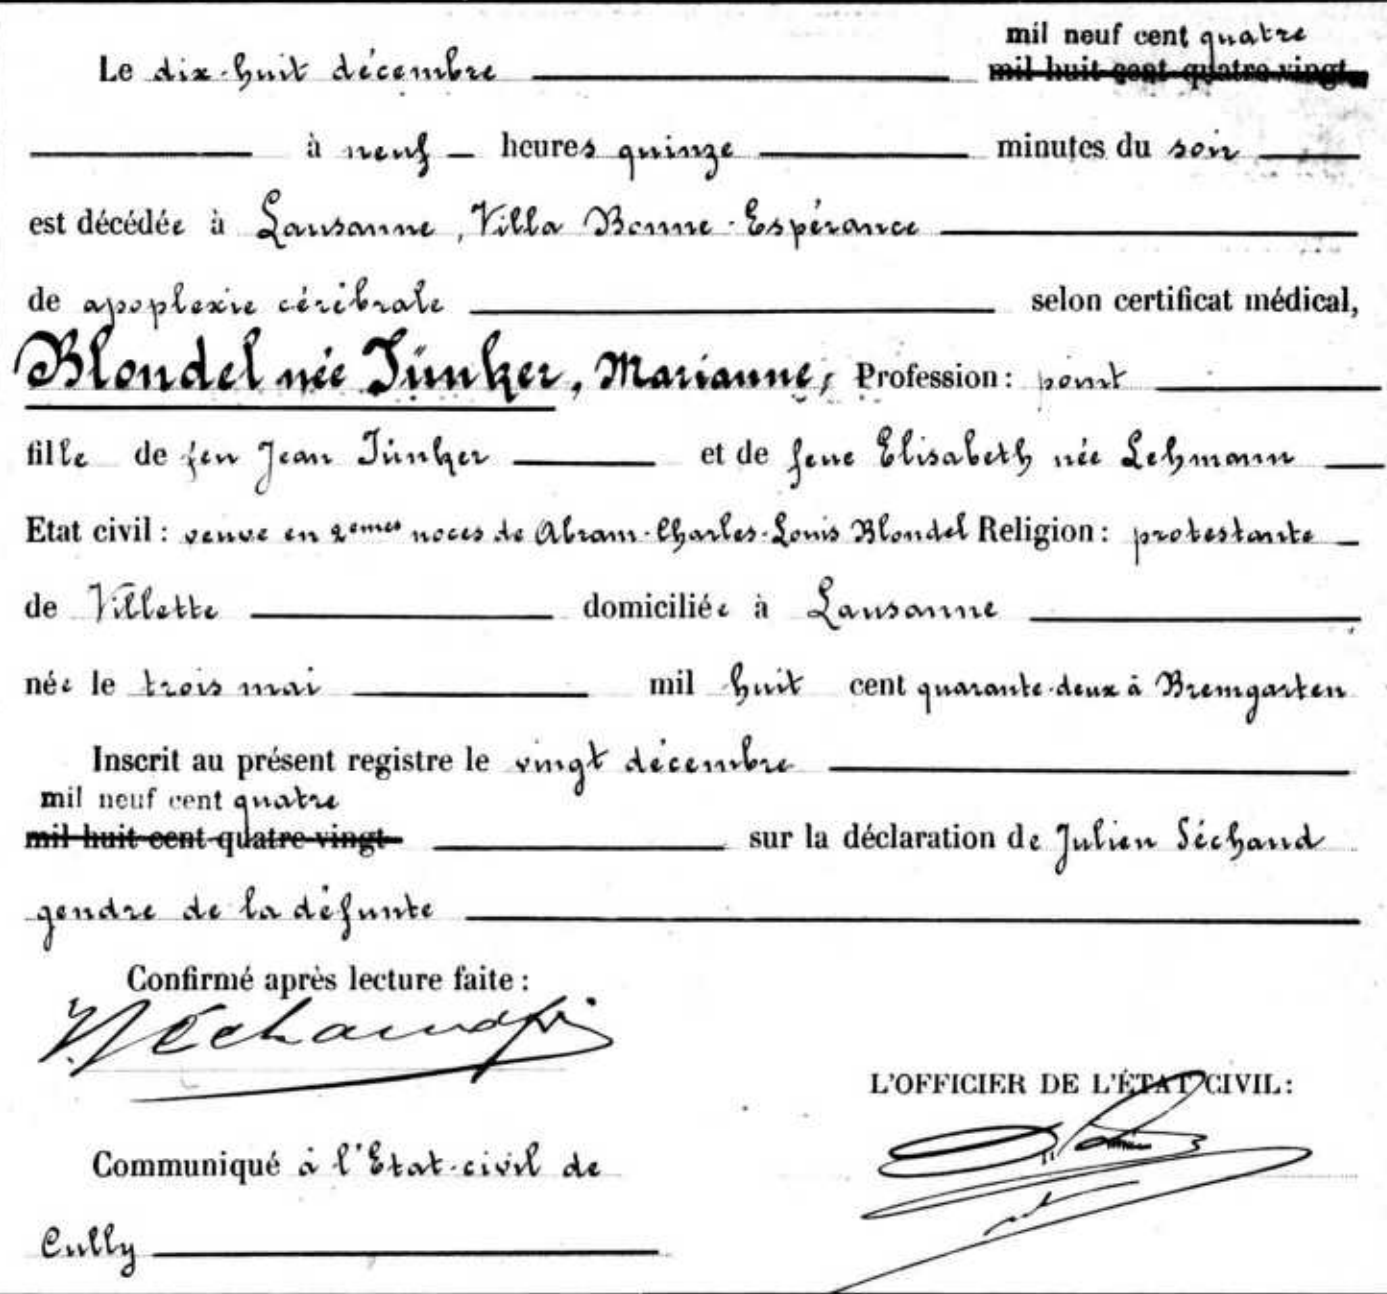 mil neuf cent quatre
Le dix-huit décembre mil huit cent quatre vingt
à neuf heures quinze minutes du soir
est décédée à Lausanne, Villa Bonne-Espérance
de apoplexie cérébrale selon certificat médical,
Blondel née Jünker, Marianne, Profession: point
fille de feu Jean Jünker et de feue Elisabeth née Lehmann
Etat civil: veuve en 2emes noces de Abram-Charles-Louis Blondel Religion: protestante
de Villette domiciliée à Lausanne
née le trois mai mil huit cent quarante-deux à Bremgarten
Inscrit au présent registre le vingt décembre
mil neuf cent quatre
mil huit cent quatre vingt sur la déclaration de Julien Séchaud
gendre de la défunte
Confirmé après lecture faite:
L'OFFICIER DE L'ÉTAT CIVIL:
Communiqué à l'Etat-civil de
Cully